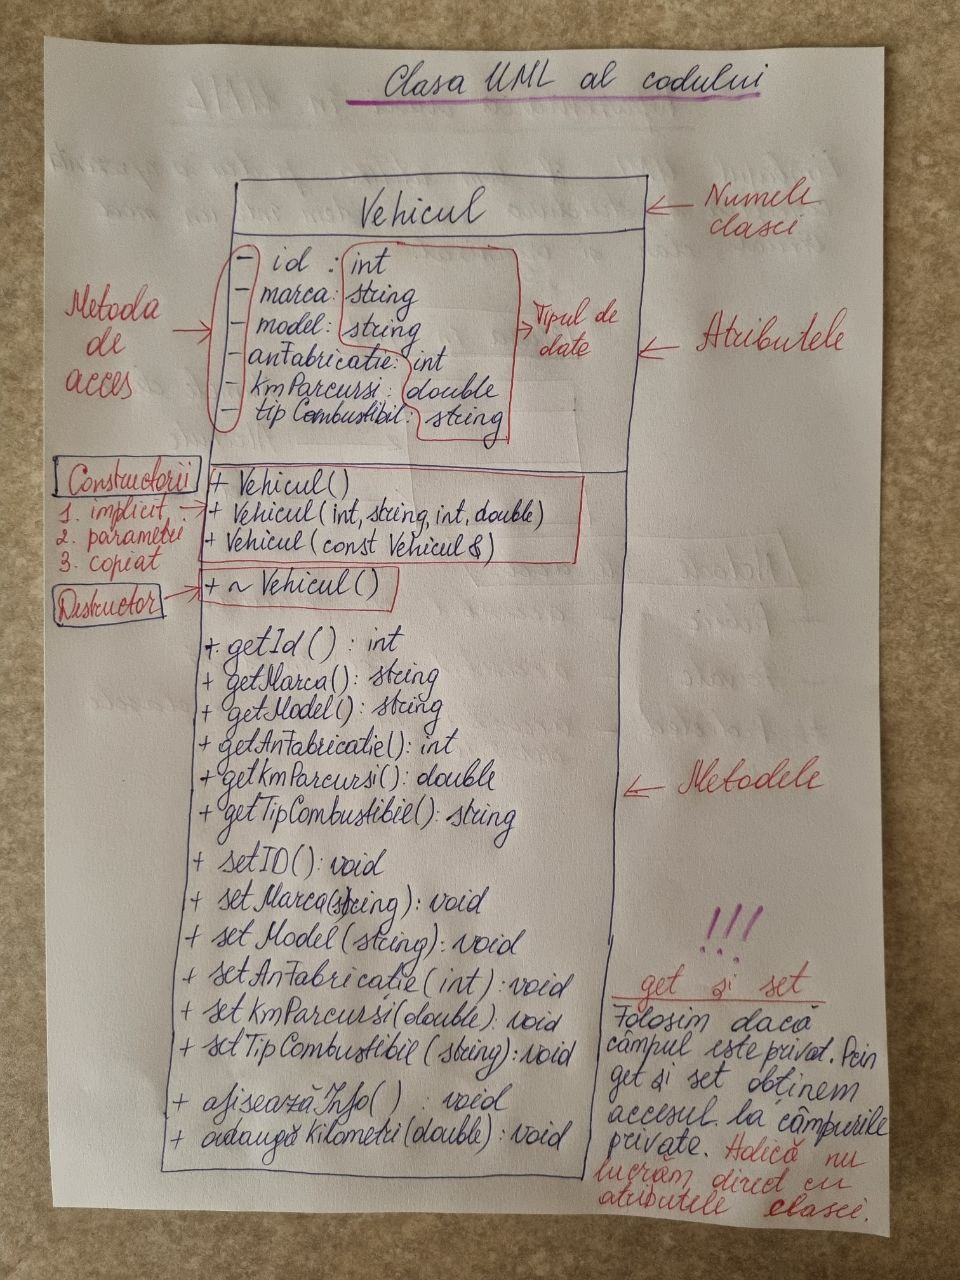 Clasa UML al codului
Vehicul
Numele
clasei
- id : int
- marca: string
- model: string
- anFabricatie: int
- kmParcursi: double
- tipCombustibil: string
Metoda
de
acces
Tipul de
date
Atributele
Constructorii
1. implicit
2. parametri
3. copiat
Destructor
+ Vehicul()
+ Vehicul(int, string, int, double)
+ Vehicul(const Vehicul &)
+ ~ Vehicul()
+ getId() : int
+ getMarca(): string
+ getModel(): string
+ getAnFabricatie(): int
+ getkmParcursi(): double
+ getTipCombustibil(): string
Metodele
+ setID(): void
+ setMarca(string): void
+ setModel(string): void
+ setAnFabricatie(int): void
+ setkmParcursi(double): void
+ setTipCombustibil(string): void
+ afiseazăInfo() : void
+ adaugăkilometri(double): void
!!!
get și set
Folosim dacă
câmpul este privat. Prin
get și set obținem
accesul la câmpurile
private. Adică nu
lucrăm direct cu
atributele clasei.